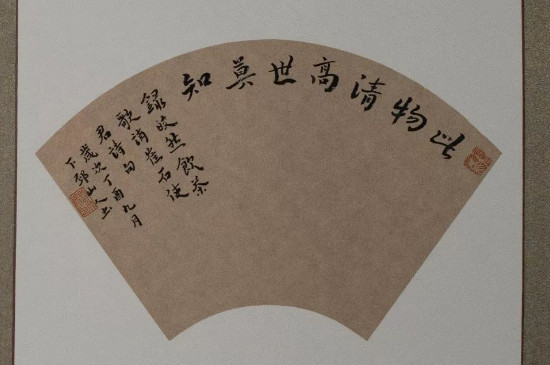 此物清高世莫知
録皎然飲茶
歌誚崔石使
君詩句
歲次丁酉九月
下邳山人書